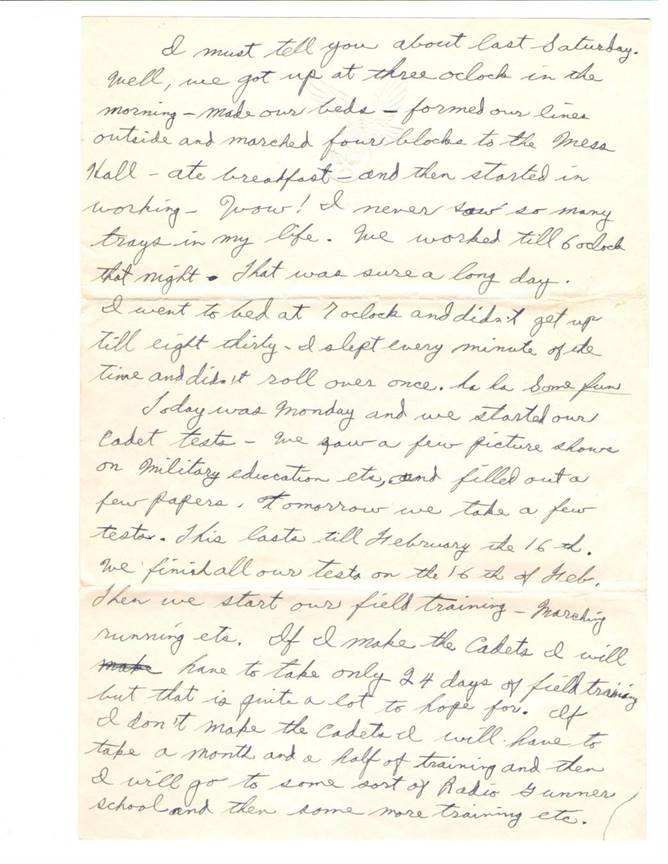 I must tell you about last Saturday.
Well, we got up at three oclock in the
morning - made our beds - formed our lines
outside and marched four blocks to the Mess
Hall - ate breakfast - and then started in
working - Wow! I never saw so many
trays in my life. We worked till 6 oclock
that night. That was sure a long day.
I went to bed at 7 oclock and didn't get up
till eight thirty - I slept every minute of the
time and didn't roll over once. ha ha Some fun
Today was Monday and we started our
Cadet tests - We saw a few picture shows
on Military education etc, and filled out a
few papers. Tomorrow we take a few
tests. This lasts till February the 16 th.
We finish all our tests on the 16 th of Feb.
Then we start our field training - Marching
running etc. If I make the Cadets I will
make have to take only 24 days of field training
but that is quite a lot to hope for. If
I don't make the Cadets I will have to
take a month and a half of training and then
I will go to some sort of Radio Gunner
school and then some more training etc.